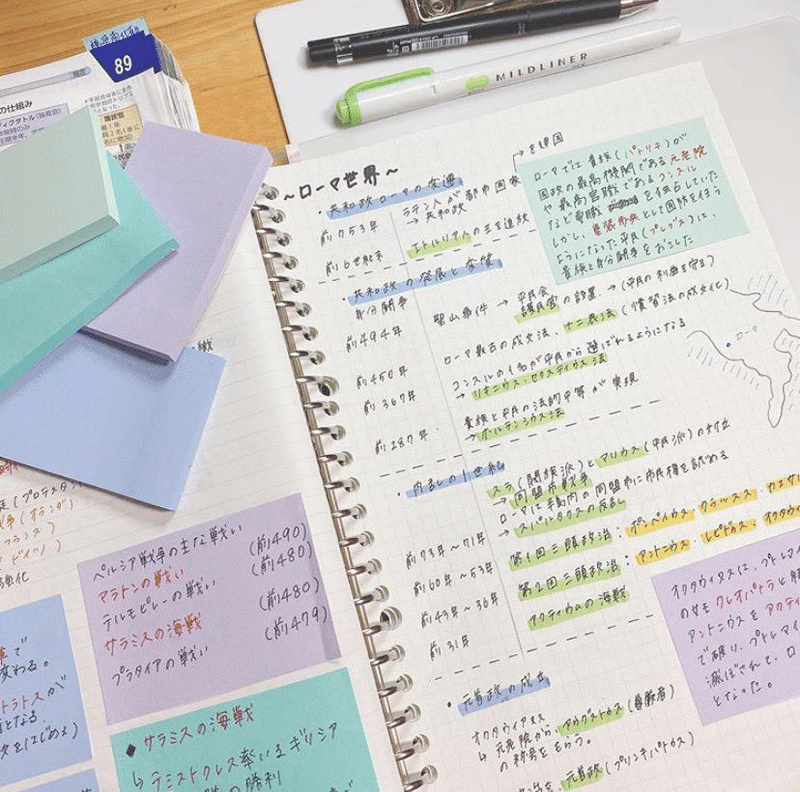 89
の仕組み
護民官
MILDLINER
〜ローマ世界〜
・共和政ローマの変遷
前753年 ラテン人が都市国家
→ 共和政
前6世紀末 エトルリア人の王を追放
ローマでは貴族(パトリキ)が
国政の最高機関である元老院
や最高官職であるコンスル
など要職を独占していた
しかし、重装歩兵として国防を担う
ようになった平民(プレブス)は、
貴族と身分闘争をおこした
・共和政の発展と変質
身分闘争
前494年 聖山事件 → 平民会
護民官の設置 → (平民の利益を守る)
前450年 ローマ最古の成文法、十二表法 (慣習法の成文化)
前367年 コンスルの1名が平民から選ばれるようになる
→ リキニウス・セクスティウス法
前287年 貴族と平民の法的平等が実現
→ ホルテンシウス法
・内乱の1世紀
スラ(閥族派)とマリウス(平民派)の対立
→ 同盟市戦争
ローマは半島内の同盟市に市民権を認める
前73年〜71年 → スパルタクスの反乱
前60年〜53年 第1回三頭政治:ポンペイウス・クラッスス・カエサ
前43年〜36年 第2回三頭政治:アントニウス・レピドゥス・オクタウ
前31年 アクティウムの海戦
・ローマ
オクタウィアヌスは、プトレマイ
の女王クレオパトラと
アントニウスをアクティ
で破り、プトレマイ
滅ぼされて、ロ
となった。
・元首政の成立
オクタウィアヌス
↳ 元老院から、アウグストゥス(尊厳者)
の称号をもらう。
元首政(プリンキパトゥス)
ペルシア戦争の主な戦い
マラトンの戦い (前490)
テルモピレーの戦い (前480)
サラミスの海戦 (前480)
プラタイアの戦い (前479)
◆サラミスの海戦
↳テミストクレス率いるギリシア
の勝利
(プロテスタン
(オランダ)
フランス
ドイツ)
強化
で
変わる。
となる
をはじめる)